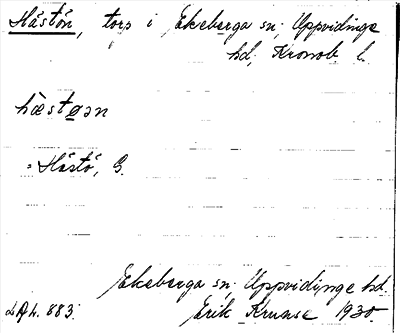 Håstön, torp i Ekeberga sn; Uppvidinge
hd, Kronob l.
håstøən
= Håstö, G.
Ekeberga sn; Uppvidinge hd
Erik Kruuse 1930
LAL. 883.